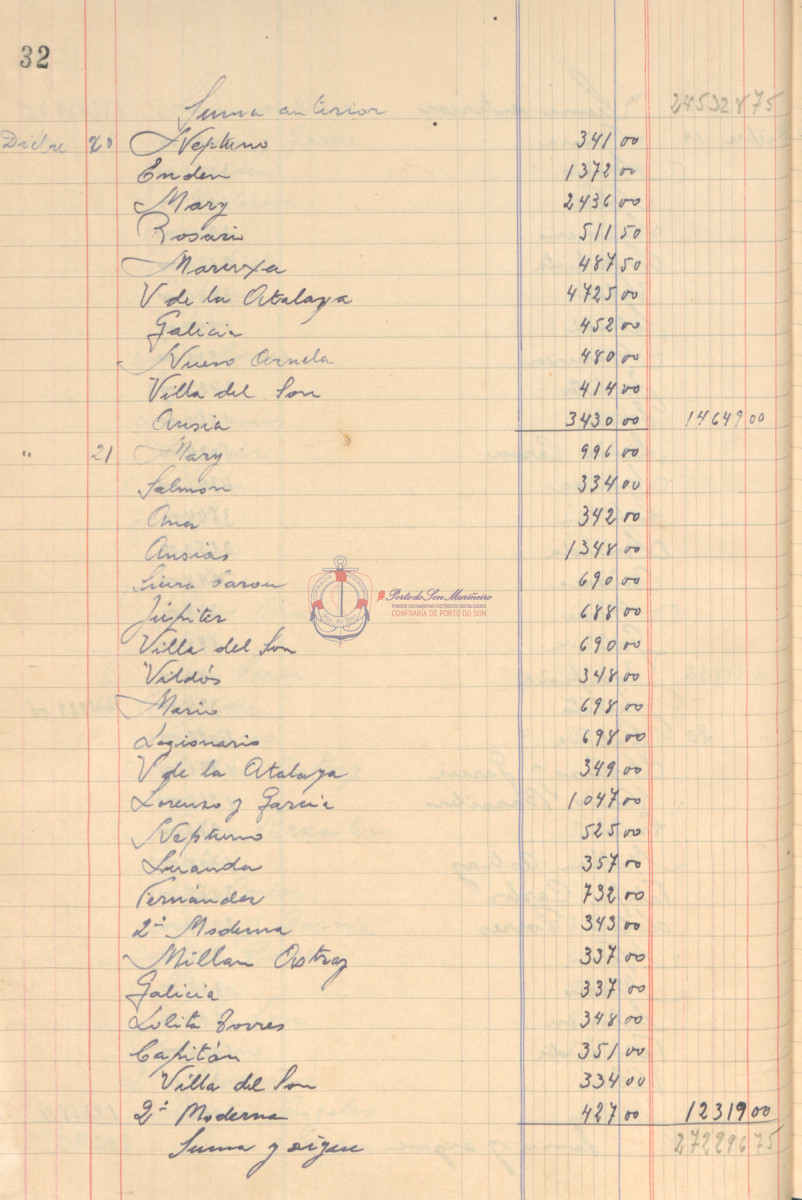 32
Suma anterior 245328 75
Dicbre 20 Neptuno 341 00
Enden 1372 00
Mary 2436 00
Rosario 511 50
Maruxa 487 50
V de la Atalaya 4725 00
Galicia 452 00
Nuevo Arnela 480 00
Villa del Son 414 00
Ansia 3430 00 14649 00
" 21 Mary 996 00
Salmon 334 00
Ana 342 00
Ansias 1348 00
Sierra 690 00
PORTO DO SON
Porto do Son Mariñeiro
FONDOS DOCUMENTAIS HISTÓRICOS DIXITALIZADOS
CONFRARIA DE PORTO DO SON
Júpiter 688 00
Villa del Son 690 00
Vildós 348 00
Mario 698 00
Legionario 698 00
V de la Atalaya 349 00
Lorenzo y García 1047 00
Neptuno 525 00
Luranda 357 00
Fernández 732 00
2ª Moderna 343 00
Millan Astray 337 00
Galicia 337 00
Lolita Torres 348 00
Capitán 351 00
Villa del Son 334 00
2ª Moderna 427 00 12319 00
Suma y sigue 272296 75